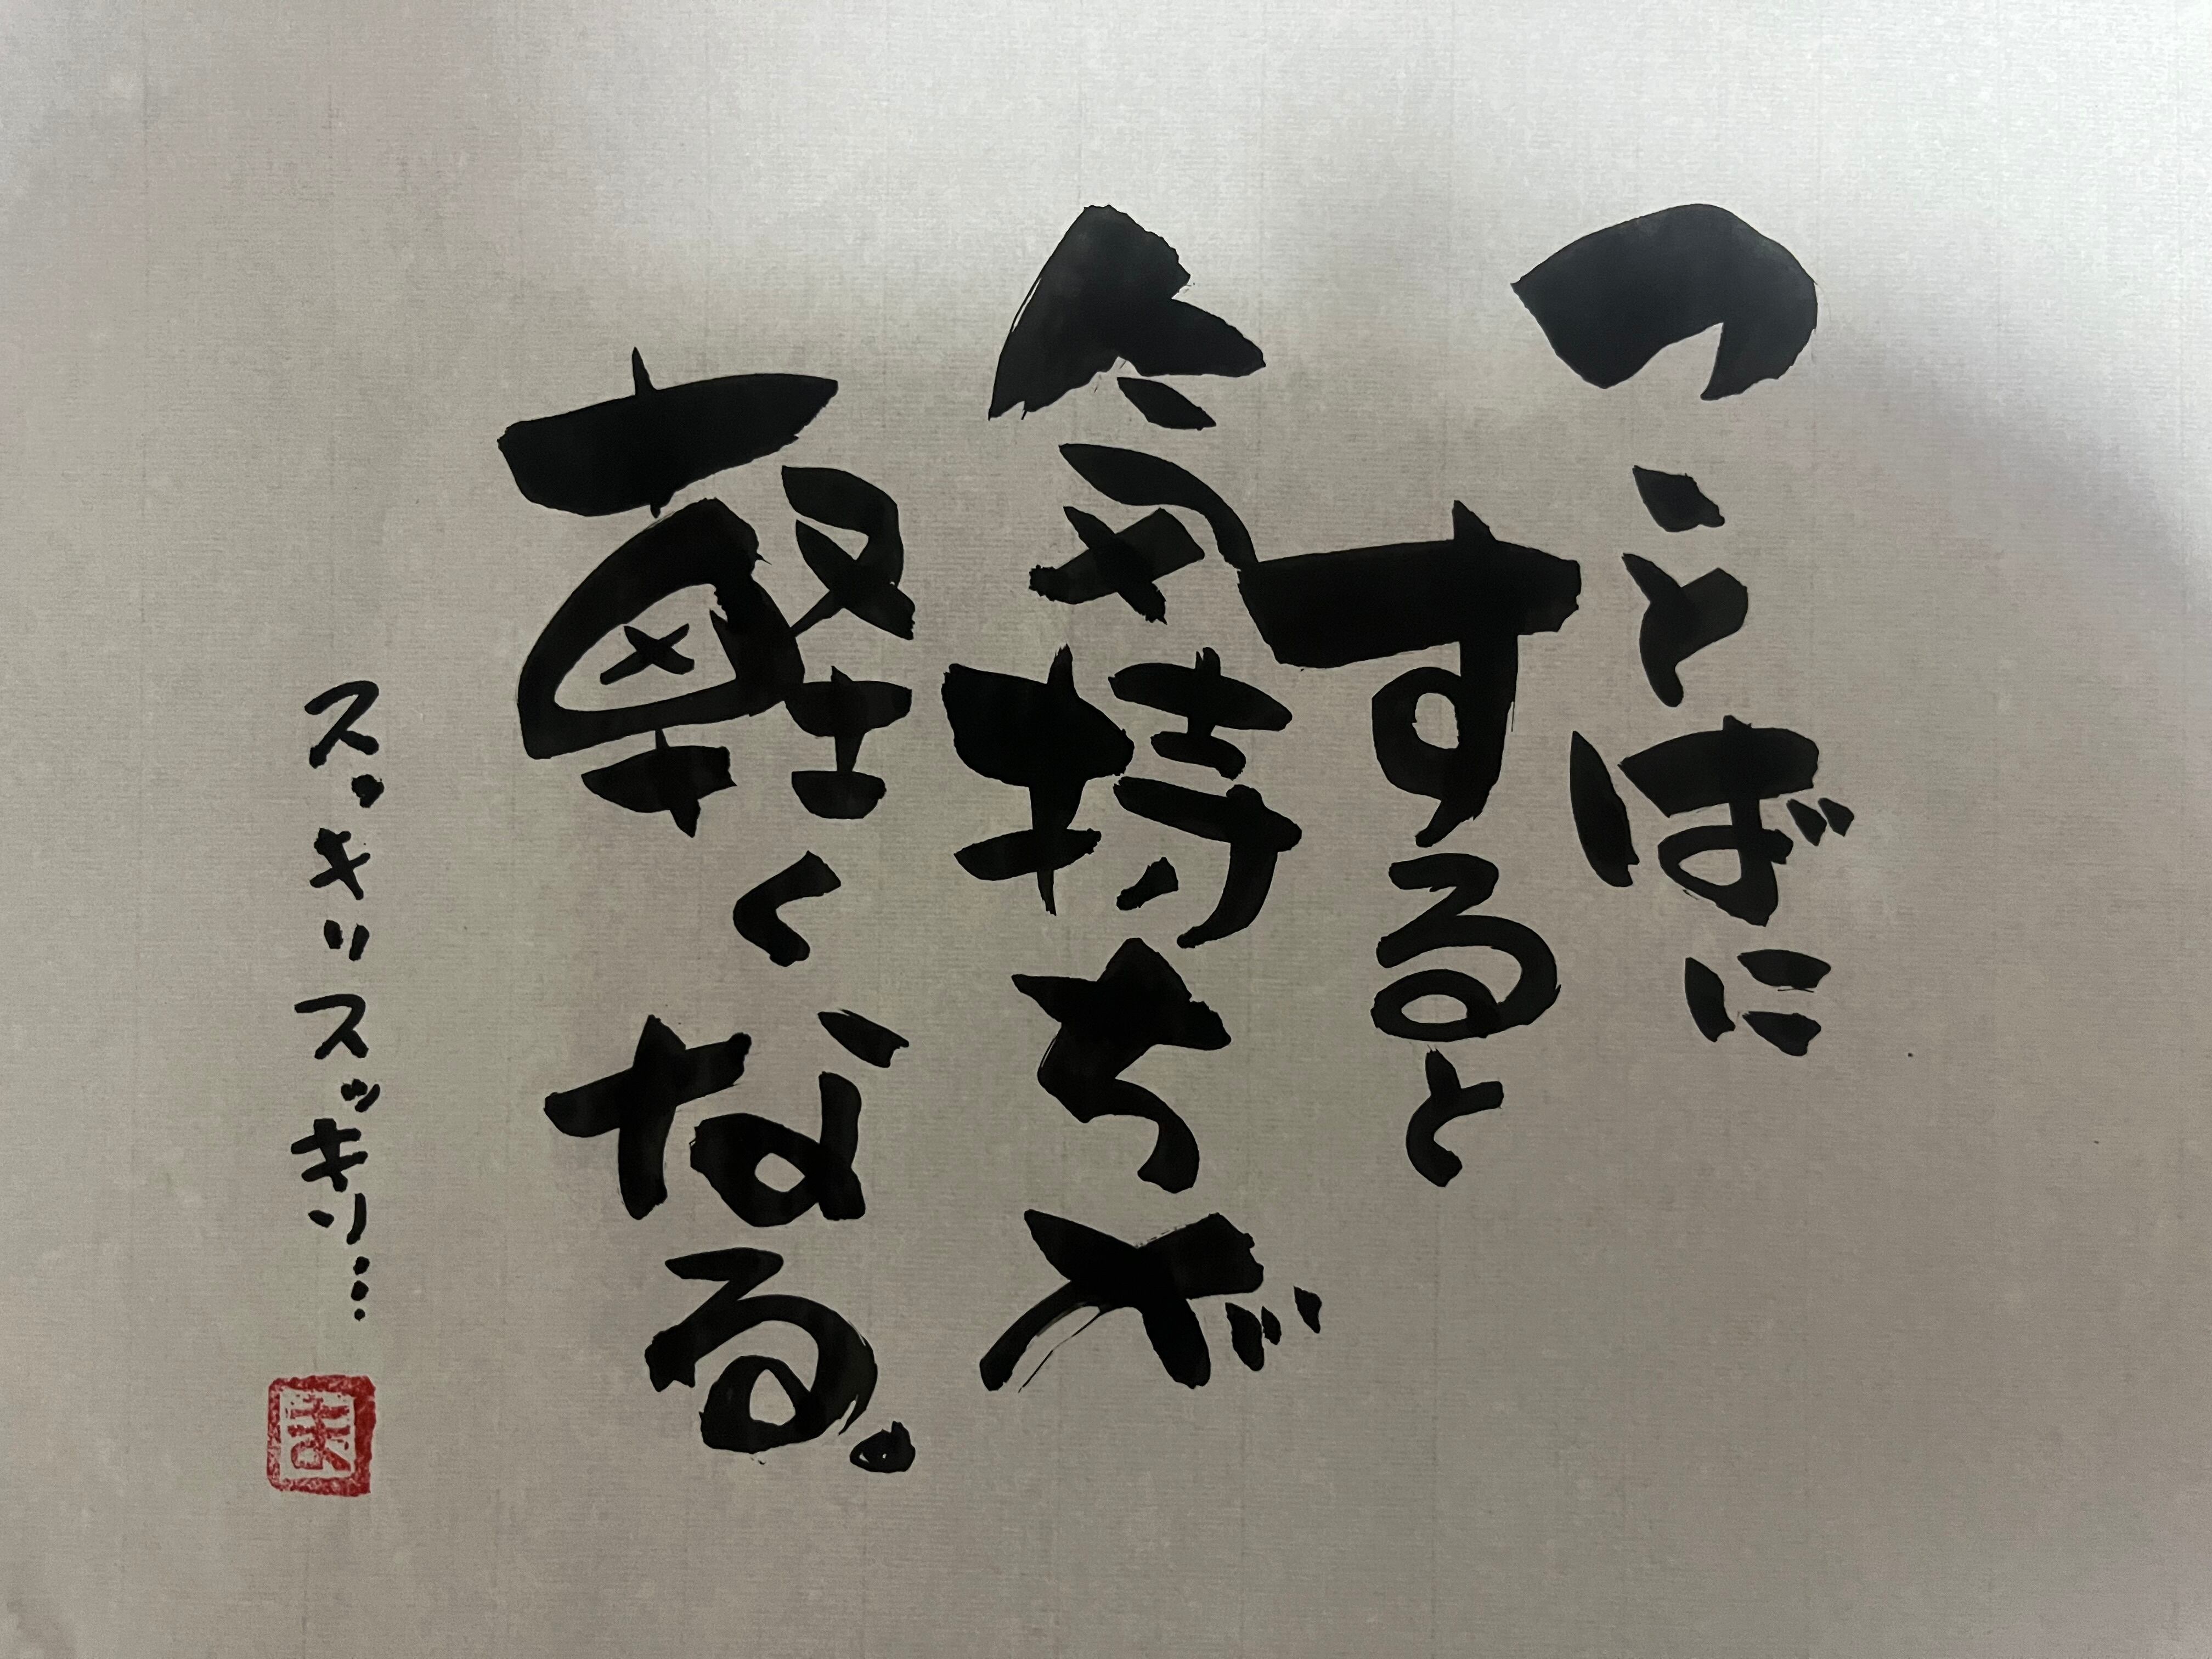 ことばに
すると
気持ちが
軽くなる。
スッキリスッキリ…
ま